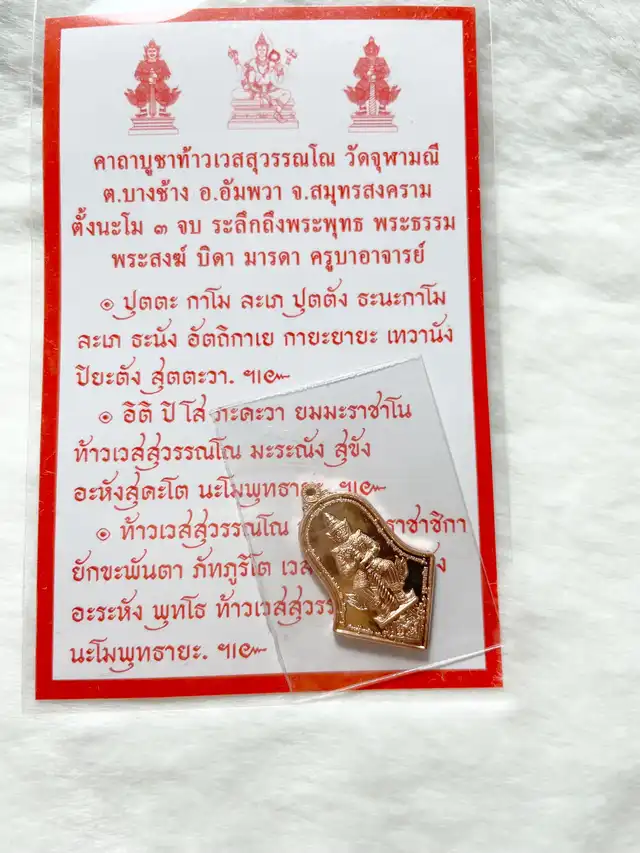 คาถาบูชาท้าวเวสสุวรรณโณ วัดจุฬามณี
ต.บางช้าง อ.อัมพวา จ.สมุทรสงคราม
ตั้งนะโม ๓ จบ ระลึกถึงพระพุทธ พระธรรม
พระสงฆ์ บิดา มารดา ครูบาอาจารย์
๏ ปุตตะ กาโม ละเภ ปุตตัง ธะนะกาโม
ละเภ ธะนัง อัตถิกาเย กายะยายะ เทวานัง
ปิยะตัง สุตตะวา. ฯ๛
๏ อิติ ปิ โส ภะคะวา ยมมะราชาโน
ท้าวเวสสุวรรณโณ มะระณัง สุขัง
อะหังสุคะโต นะโมพุทธายะ. ฯ๛
๏ ท้าวเวสสุวรรณโณ ราชาชิกา
ยักขะพันตา ภัทภูริโต เวส ัง
อะระหัง พุทโธ ท้าวเวสสุวรร
นะโมพุทธายะ. ฯ๛